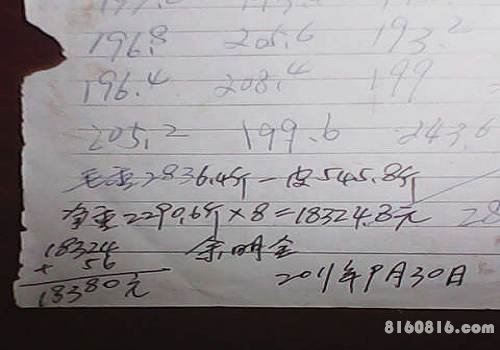 196.8 205.6 193.2
196.4 208.4 199
205.2 199.6 243.6
毛重2836.4斤-皮545.8斤
净重2290.6斤×8=18324.8元 28
18324 余明金
+ 56 2011年9月30日
18380元
8160816.com